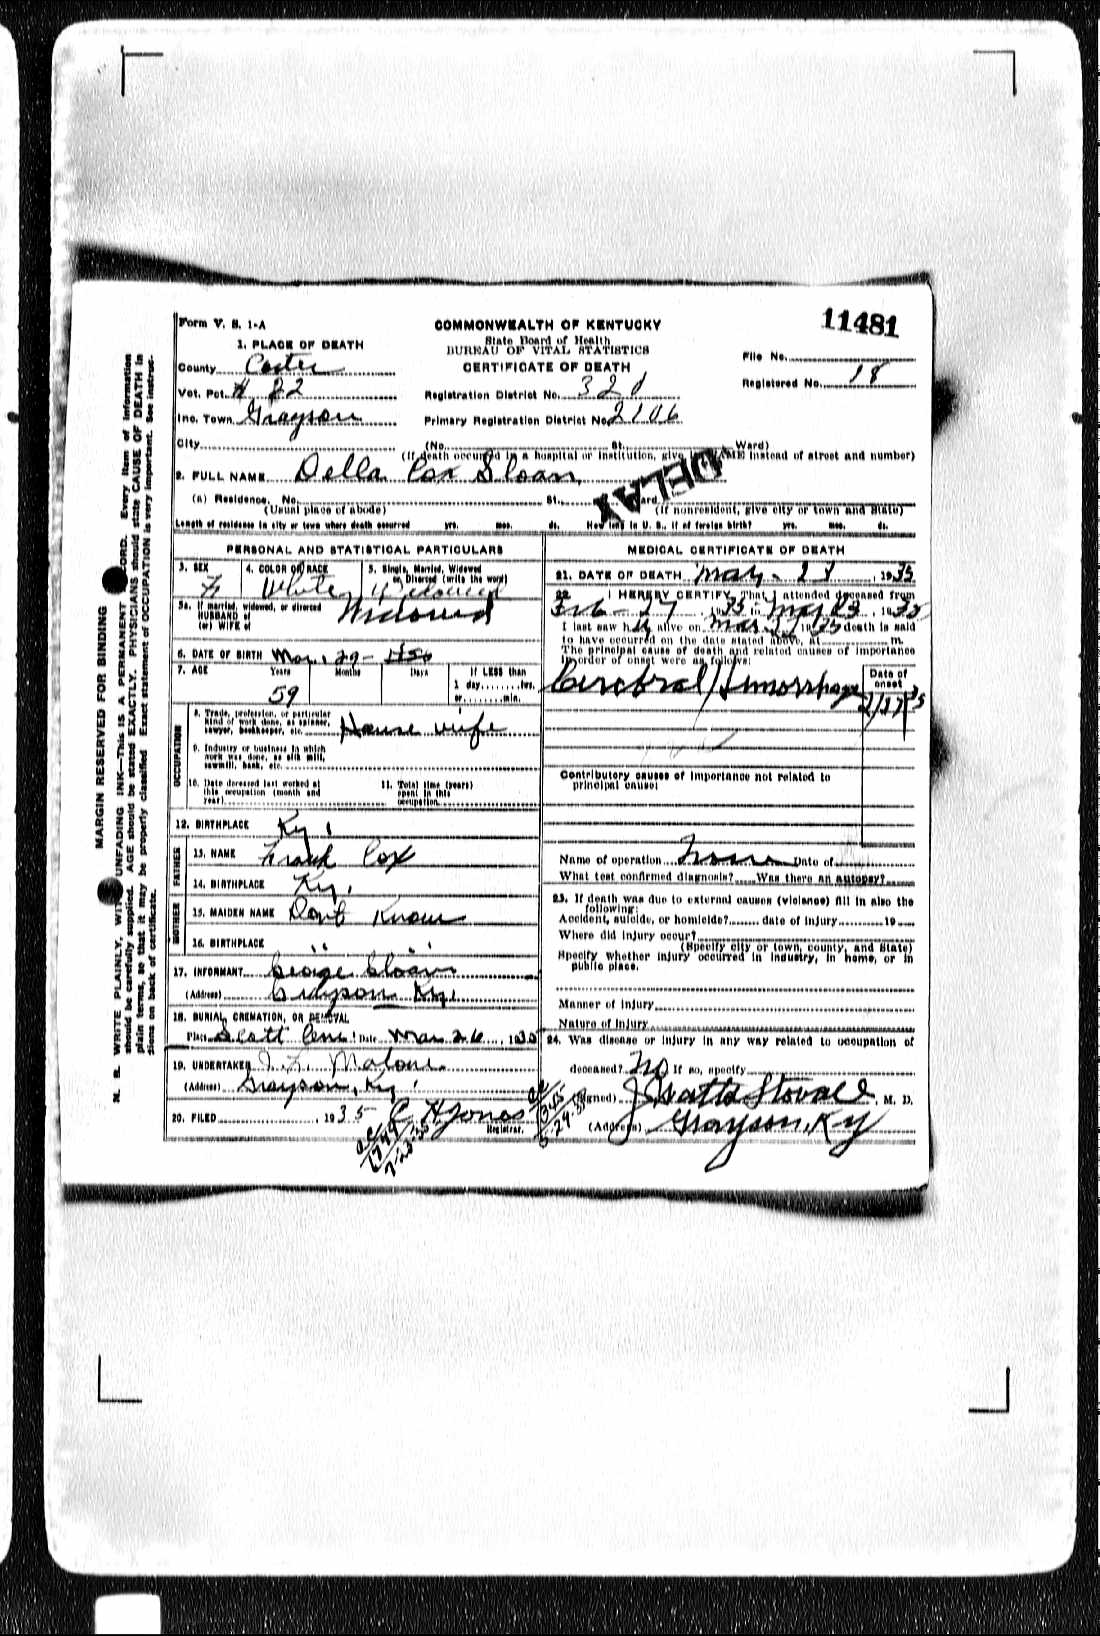 Form V. S. 1-A
COMMONWEALTH OF KENTUCKY
11481
1. PLACE OF DEATH
State Board of Health
BUREAU OF VITAL STATISTICS
File No.
County Carter
CERTIFICATE OF DEATH
Registered No. 18
Vot. Pct. # 22
Registration District No. 320
Inc. Town Grayson
Primary Registration District No. 2106
City
(No. St. Ward)
(If death occurred in a hospital or institution, give its NAME instead of street and number)
2. FULL NAME Della Cox Sloan
DELAY
(a) Residence. No. St. Ward.
(Usual place of abode)
(If nonresident, give city or town and State)
Length of residence in city or town where death occurred yrs. mos. ds. How long in U. S., if of foreign birth? yrs. mos. ds.
PERSONAL AND STATISTICAL PARTICULARS
3. SEX
F
4. COLOR OR RACE
White
5. Single, Married, Widowed
or Divorced (write the word)
Widowed
5a. If married, widowed, or divorced
HUSBAND of
(or) WIFE of
Widowed
6. DATE OF BIRTH Mar. 29-
7. AGE
Years
Months
Days
If LESS than
1 day, hrs.
or min.
59
OCCUPATION
8. Trade, profession, or particular
kind of work done, as spinner,
sawyer, bookkeeper, etc.
House wife
9. Industry or business in which
work was done, as silk mill,
sawmill, bank, etc.
10. Date deceased last worked at
this occupation (month and
year)
11. Total time (years)
spent in this
occupation
12. BIRTHPLACE Ky.
FATHER
13. NAME Frank Cox
14. BIRTHPLACE Ky.
MOTHER
15. MAIDEN NAME Dont Know
16. BIRTHPLACE " "
17. INFORMANT George Sloan
(Address) Grayson Ky.
18. BURIAL, CREMATION, OR REMOVAL
Place Scott Cem. Date Mar 26, 1935
19. UNDERTAKER J. L. Malone
(Address) Grayson, Ky.
20. FILED , 1935
Jones
Registrar.
MEDICAL CERTIFICATE OF DEATH
21. DATE OF DEATH 23, 1935
22. I HEREBY CERTIFY, That I attended deceased from
Feb - 27, 1935 to Mar 23, 1935
I last saw her alive on Mar 1935 death is said
to have occurred on the date stated above, at m.
The principal cause of death and related causes of importance
in order of onset were as follows:
Date of
onset
Cerebral Hemorrhage 2/27/35
Contributory causes of importance not related to
principal cause:
Name of operation None Date of
What test confirmed diagnosis? Was there an autopsy?
23. If death was due to external causes (violence) fill in also the
following:
Accident, suicide, or homicide? date of injury 19
Where did injury occur?
(Specify city or town, county, and State)
Specify whether injury occurred in industry, in home, or in
public place.
Manner of injury
Nature of injury
24. Was disease or injury in any way related to occupation of
deceased? No If so, specify
(Signed) J Watts Stovall, M. D.
(Address) Grayson, Ky
MARGIN RESERVED FOR BINDING
N. B. WRITE PLAINLY, WITH UNFADING INK—THIS IS A PERMANENT RECORD. Every item of information
should be carefully supplied. AGE should be stated EXACTLY. PHYSICIANS should state CAUSE OF DEATH in
plain terms, so that it may be properly classified. Exact statement of OCCUPATION is very important. See instruc-
tions on back of certificate.